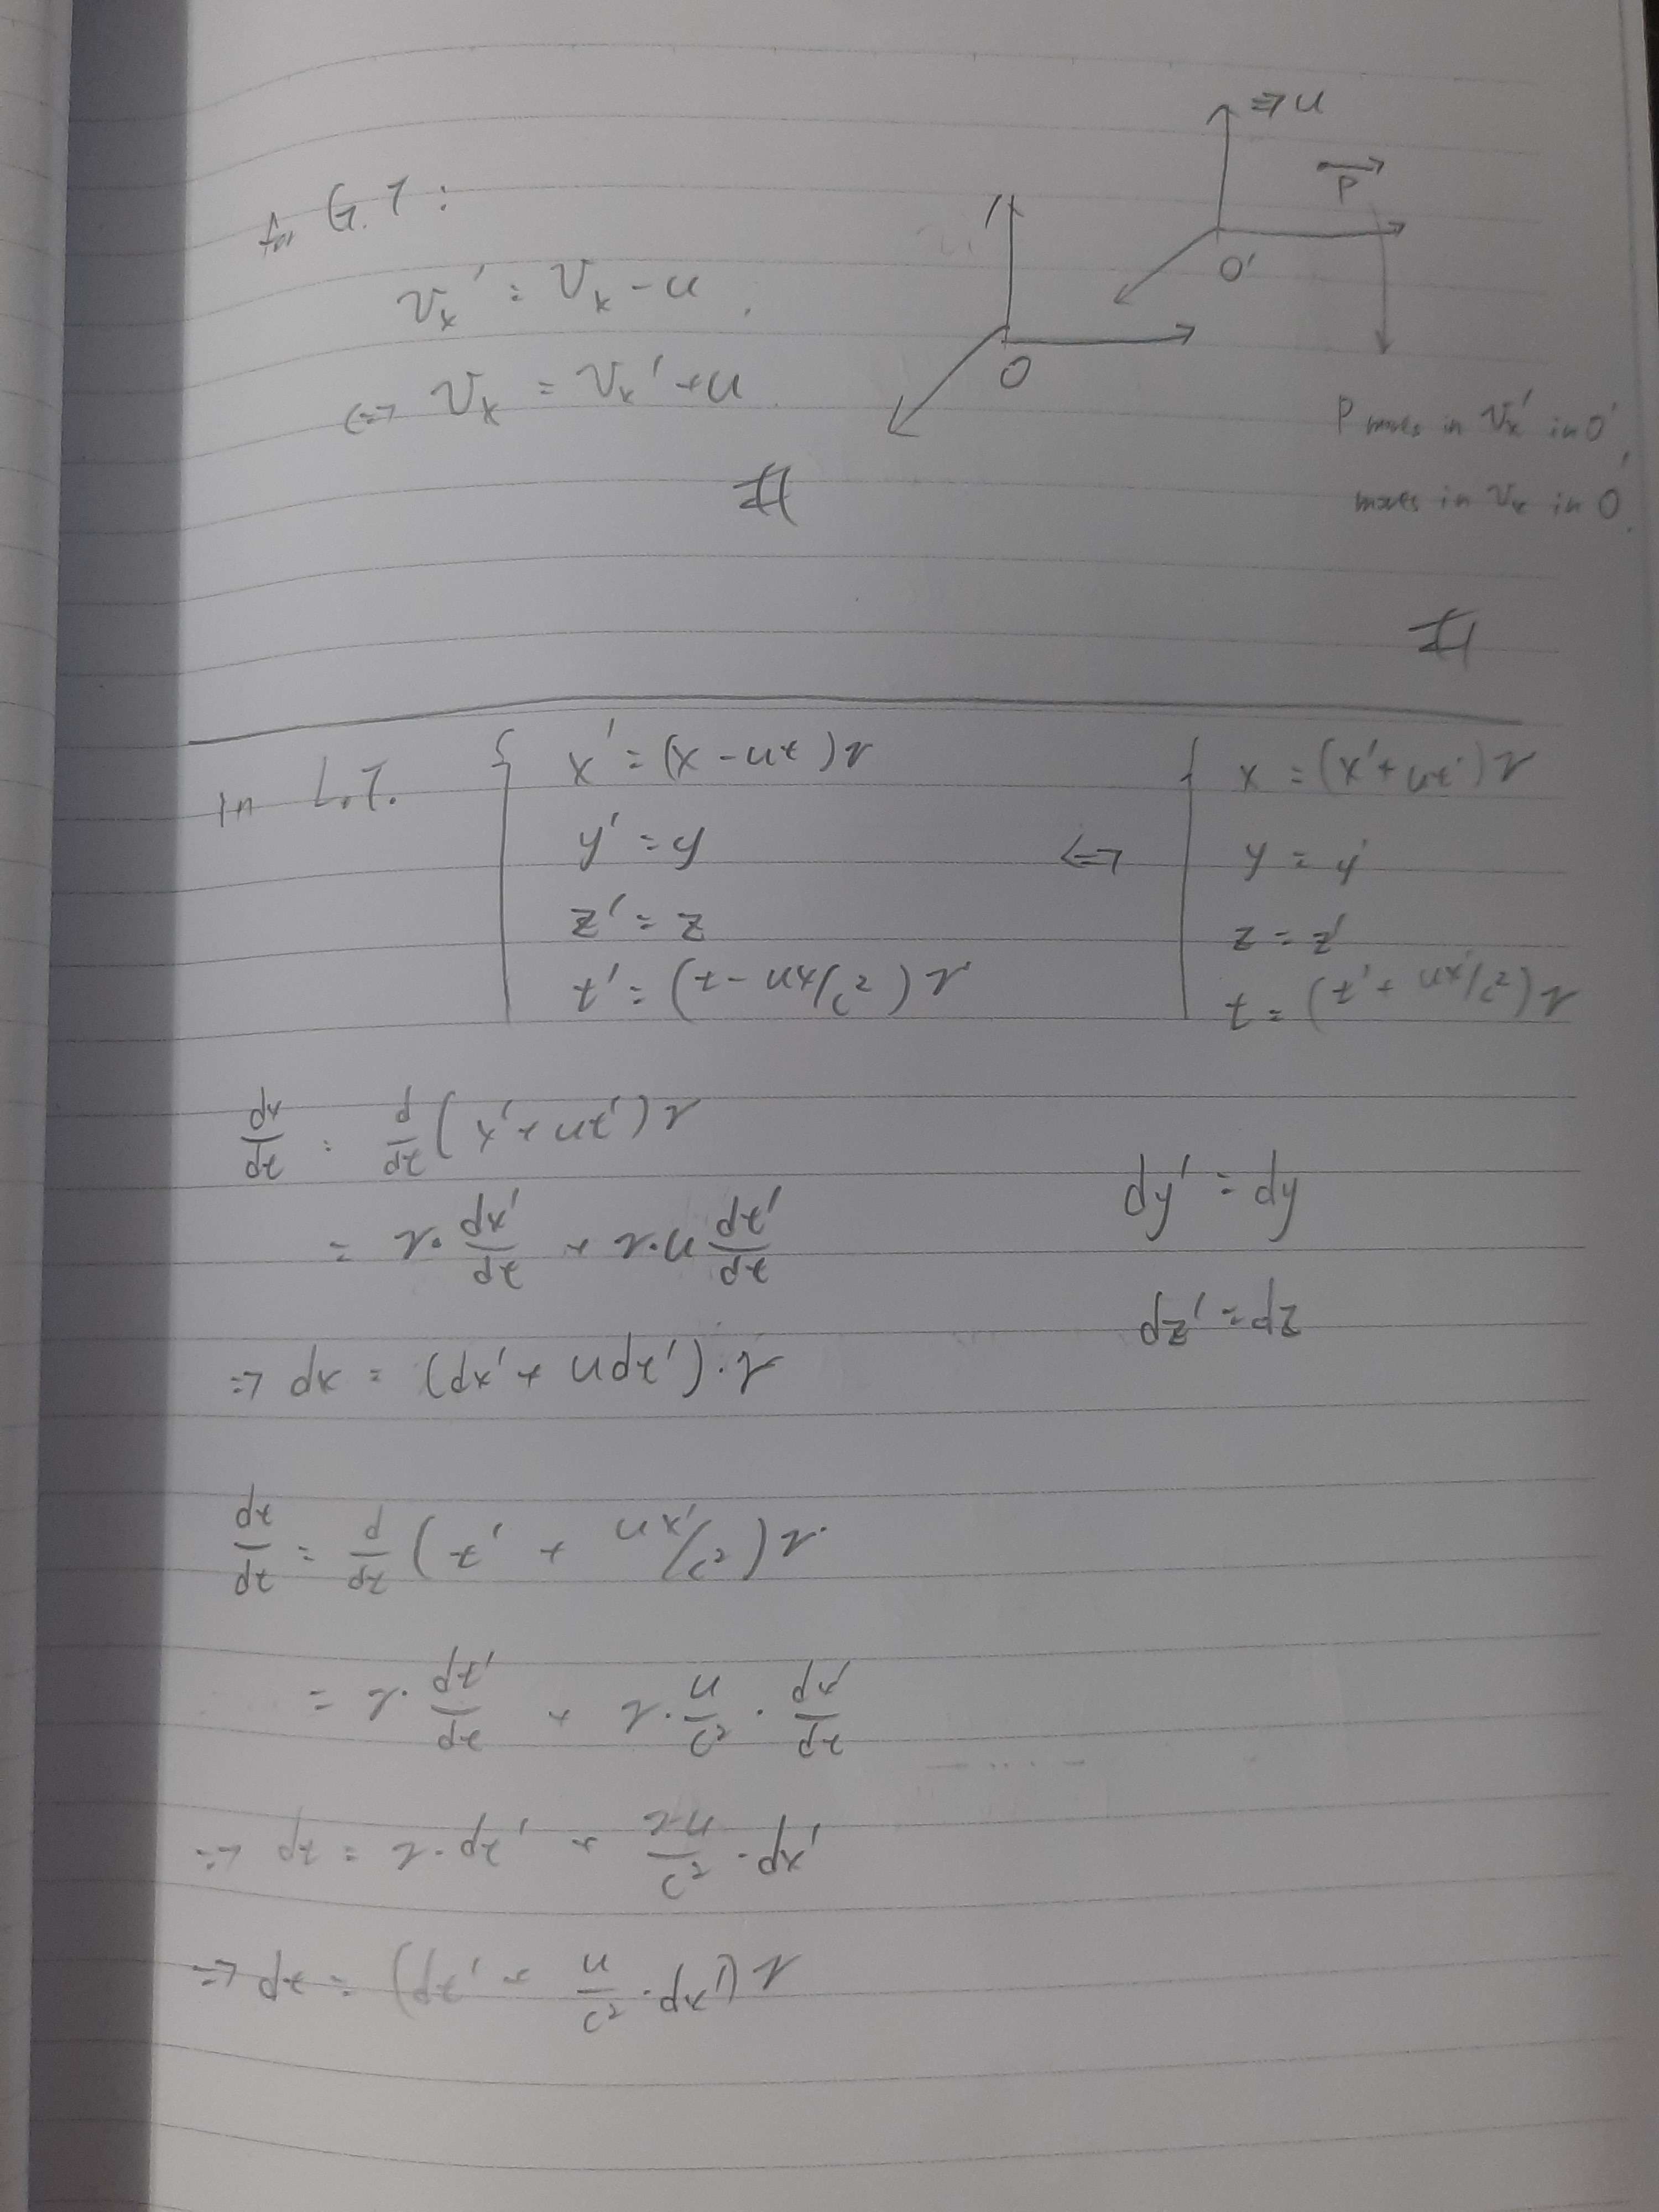 In G.T:
⇒ u
P
O'
v_x' = v_x - u.
⇔ v_x = v_x' + u
O
P moves in v_x' in O',
moves in v_x in O.
#
#
In L.T. { x' = (x - ut)γ
y' = y
z' = z
t' = (t - ux/c²)γ
⇔ { x = (x' + ut')γ
y = y'
z = z'
t = (t' + ux'/c²)γ
dx/dt = d/dt (x' + ut')γ
= γ· dx'/dt + γ·u dt'/dt
⇒ dx = (dx' + udt')·γ
dy' = dy
dz' = dz
dt/dt = d/dt (t' + ux'/c²)γ
= γ· dt'/dt + γ· u/c² · dx'/dt
⇒ dt = γ·dt' + γu/c² ·dx'
⇒ dt = (dt' + u/c² ·dx')γ